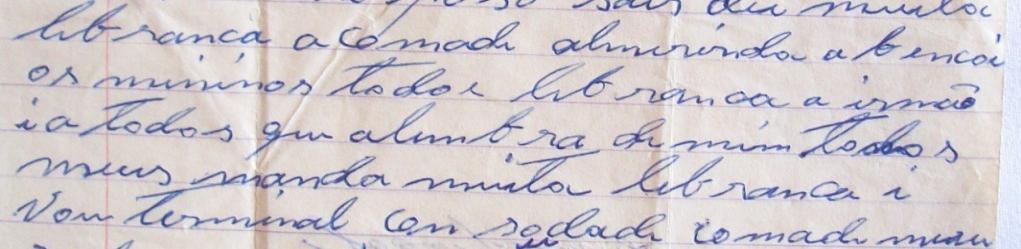 sais deu muita
librança a comade almirinda a bencoi
os mininos todos librança a irmão
i a todos qui alumbra de mim todos
meus manda muita librança i
vou terminal con sodade comade meu